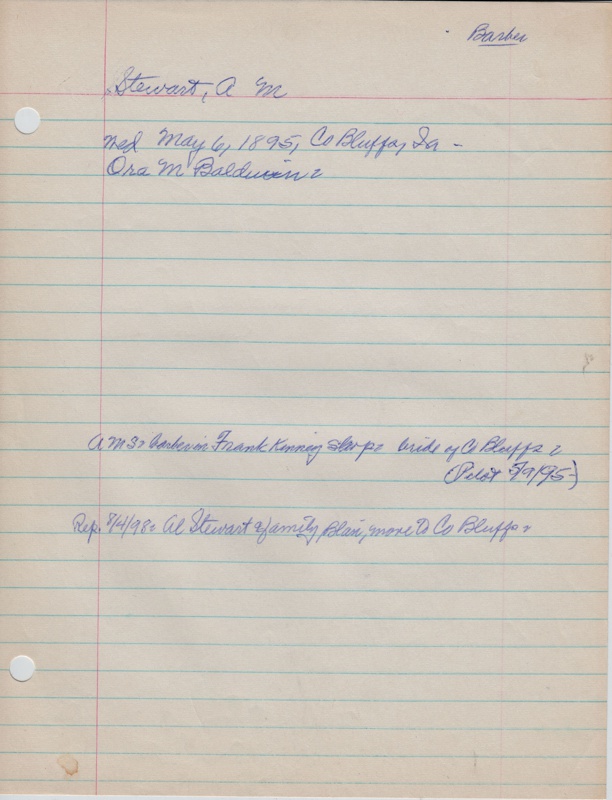 Barber
Stewart, A M
Med May 6, 1895, Co Bluffs, Ia -
Ora M Baldwin =
A M S= barber in Frank Kenney shop= bride of Co Bluffs =
(Pilot 5/9/95)
Rep. 8/4/98= Al Stewart & family, Blair, move to Co Bluffs =